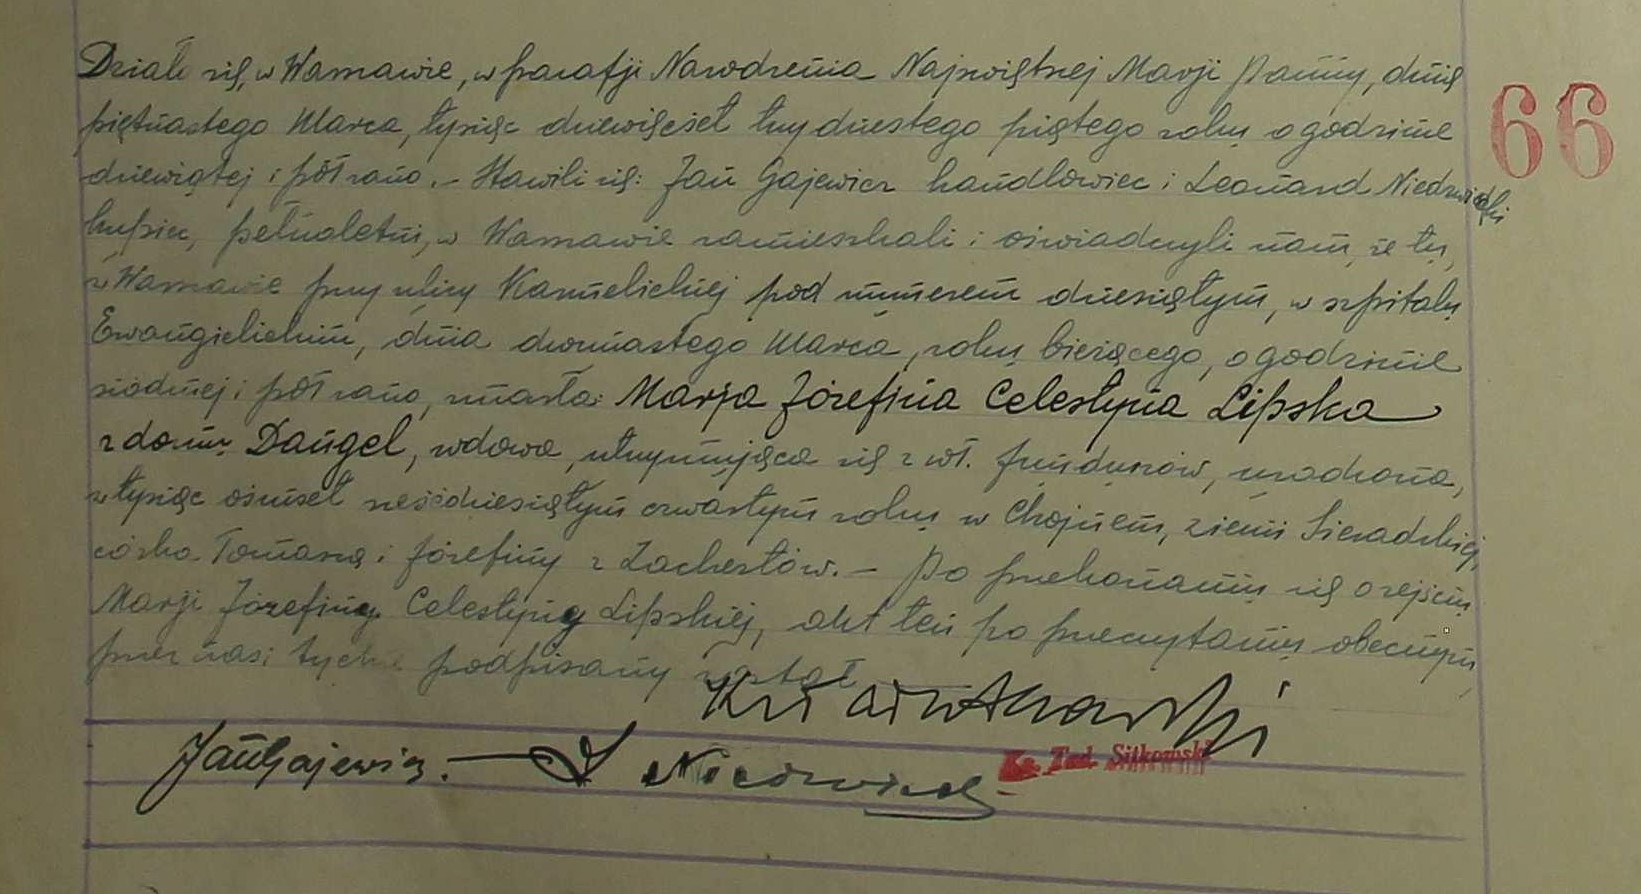 Działo się, w Warszawie, w parafji Narodzenia Najświętszej Marji Panny, dnia
66
piętnastego Marca, tysiąc dziewięćset trzydziestego piątego roku o godzinie
dziewiątej i pół rano.- Stawili się: Jan Gajewicz handlowiec i Leonard Niedzwiedzki
kupiec, pełnoletni, w Warszawie zamieszkali i oświadczyli nam, że tu,
w Warszawie przy ulicy Karmelickiej pod numerem dziesiątym, w szpitalu
Ewangielickim, dnia dwunastego Marca, roku bieżącego, o godzinie
siódmej i pół rano, zmarła: Marja Józefina Celestyna Lipska
z domu Dangel, wdowa, utrzymująca się z wł. funduszów, urodzona,
w tysiąc ośmset sześćdziesiątym czwartym roku w Chojnem, ziemi Sieradzkiej,
córka Tomasza i Józefiny z Zachertów.- Po przekonaniu się o zejściu
Marji Józefiny Celestyny Lipskiej, akt ten po przeczytaniu obecnym,
przez nas i tychże podpisany został
Ks. Tad. Sitkowski
Jan Gajewicz. L Niedzwiedz